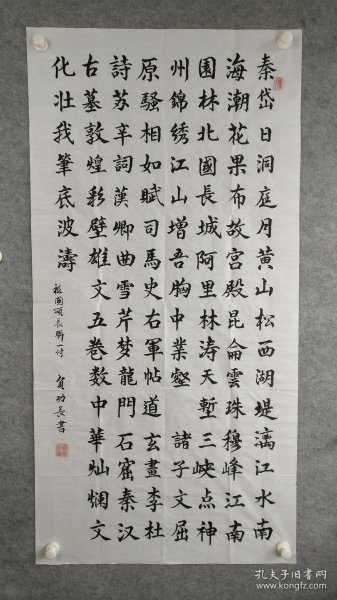 秦岱日洞庭月黄山松西湖堤漓江水南
海潮花果布故宫殿昆侖雲珠穆峰江南
園林北國長城阿里林涛天塹三峡点神
州錦绣江山增吾胸中業壑 諸子文屈
原騷相如賦司馬史右軍帖道玄畫李杜
詩苏辛詞漢卿曲雪芹梦龍門石窟秦汉
古墓敦煌彩壁雄文五卷数中華灿斓文
化壮我筆底波濤
祖國頌長聯一付
賀功長書
孔夫子旧书网
www.kongfz.com